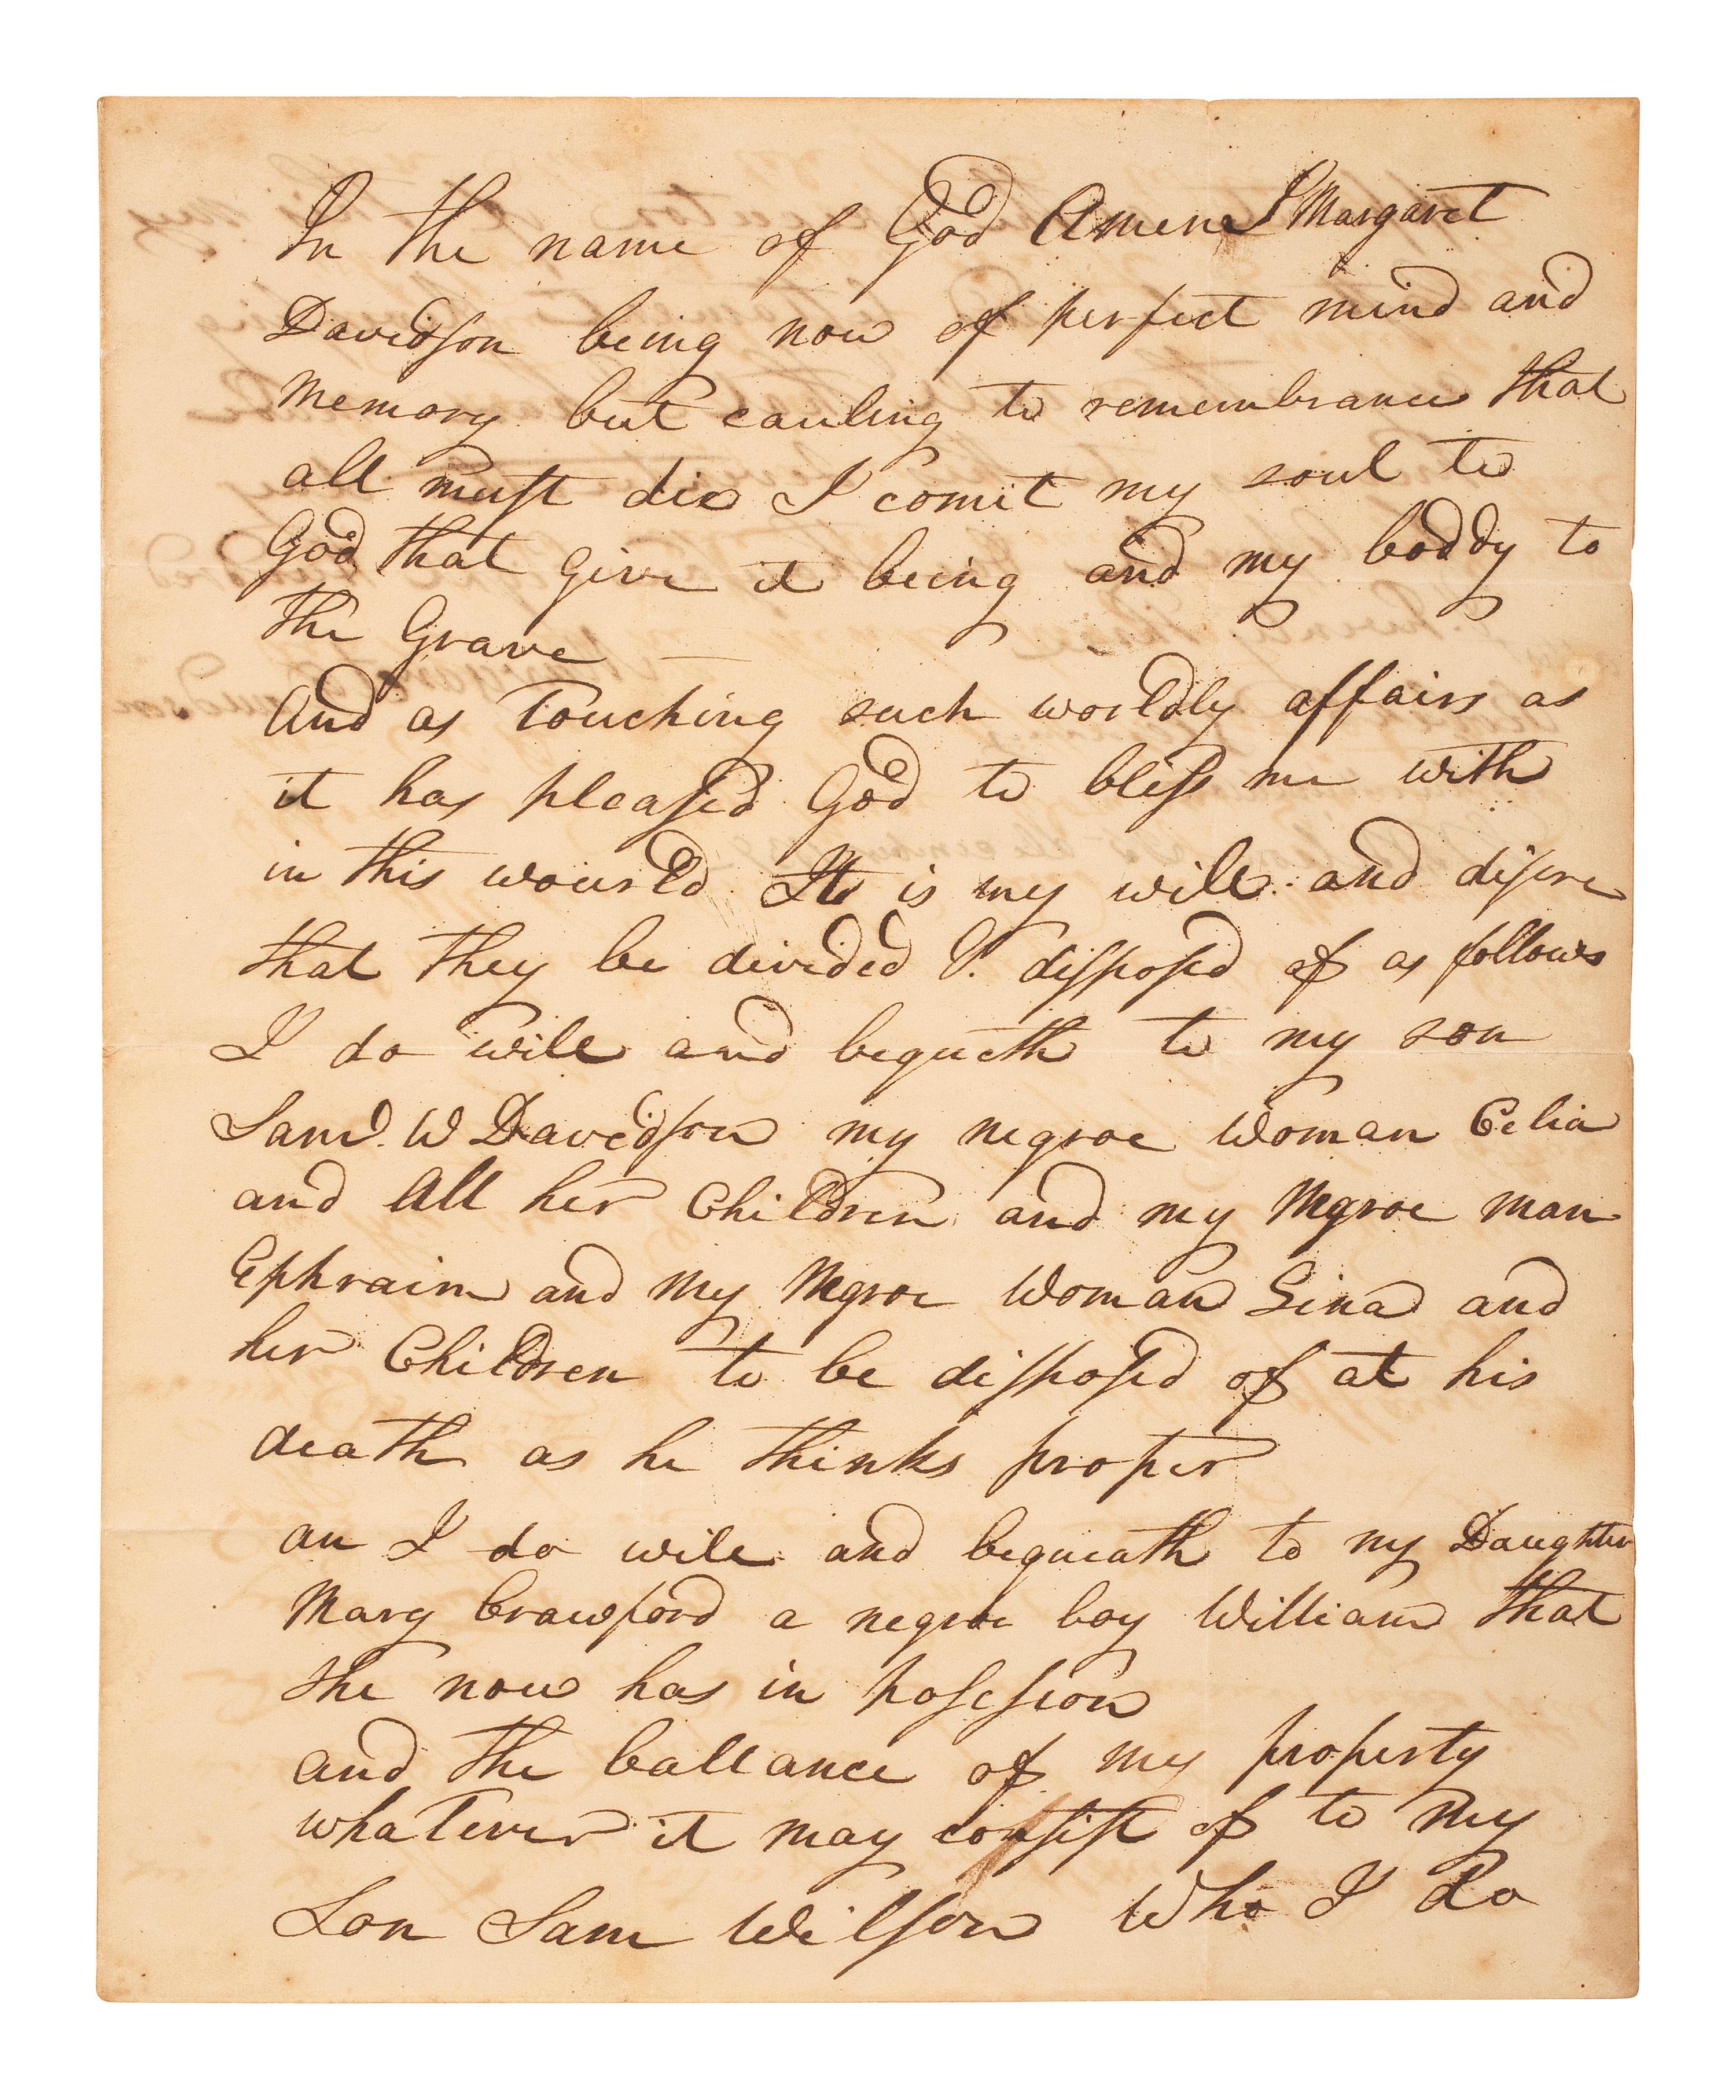 In the name of God Amen I Margaret
Davidson being now of perfect mind and
memory but cauling to remembrance that
all must die I comit my soul to
God that give it being and my boddy to
the Grave —
And as Touching such worldly affairs as
it has pleased God to bless me with
in this wourld It is my will and disire
that they be divided &. disposed of as follows
I do will and bequeth to my son
Saml. W Davidson my negroe woman Celia
and All her Children and my Negroe man
Ephraim and my Negroe Woman Sina and
her Children to be disposed of at his
death as he thinks proper
an I do will and bequeath to my Daughter
Mary Crawford a negroe boy William that
she now has in posession
and the ballance of my property
whatever it may consist of to my
Son Sam Wilson Who I do